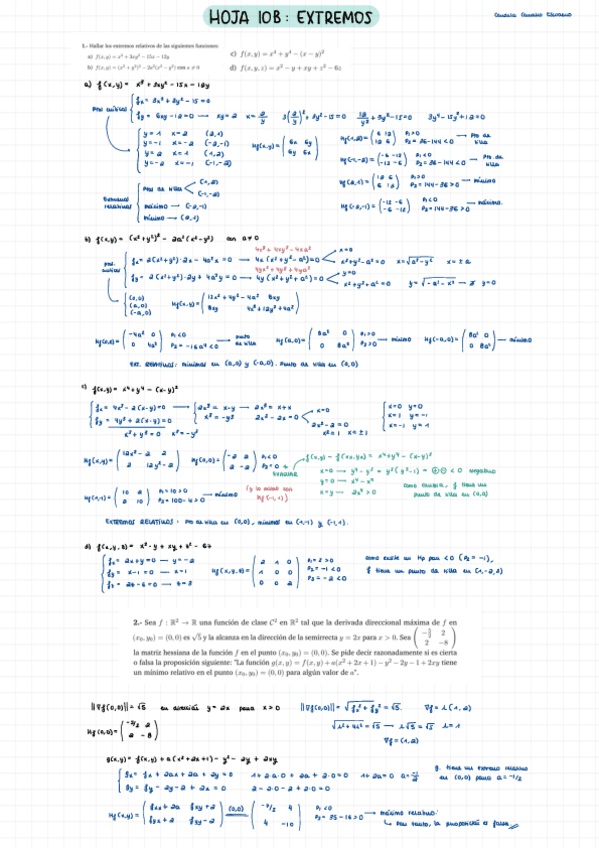 HOJA 10B: EXTREMOS
1.- Hallar los extremos relativos de las siguientes funciones:
a) f(x,y) = x³ + 3xy² − 15x − 12y
b) f(x,y) = (x² + y²)² − 2a²(x² − y²) con a ≠ 0
c) f(x,y) = x⁴ + y⁴ − (x − y)²
d) f(x,y,z) = x² − y + xy + z² − 6z
a) f(x,y) = x³ + 3xy² - 15x - 12y
fx = 3x² + 3y² - 15 = 0
fy = 6xy - 12 = 0 → xy = 2 x = 2/y 3(2/y)² + 3y² - 15 = 0 12/y² + 3y² - 15 = 0 3y⁴ - 15y² + 12 = 0
y = 1 x = 2 (2,1)
y = -1 x = -2 (-2,-1)
y = 2 x = 1 (1,2)
y = -2 x = -1 (-1,-2)
Hf(x,y) = (6x 6y / 6y 6x)
Hf(1,2) = (6 12 / 12 6) P₁>0 P₂ = 36-144 < 0 → Pto de silla
Hf(-1,-2) = (-6 -12 / -12 -6) P₁<0 P₂ = 36-144 < 0 → Pto de silla
Hf(2,1) = (12 6 / 6 12) P₁>0 P₂ = 144-36 > 0 → mínimo
Hf(-2,-1) = (-12 -6 / -6 -12) P₁<0 P₂ = 144-36 > 0 → máximo.
Extremos relativos
Pto de silla (1,2) (-1,-2)
máximo → (-2,-1)
mínimo → (2,1)
b) f(x,y) = (x²+y²)² - 2a²(x²-y²) con a≠0
4x³ + 4xy² - 4xa²
fx = 2(x²+y²)·2x - 4a²x = 0 → 4x(x²+y²-a²) = 0 x=0 x²+y²-a² = 0 x = √a²-y² x = ±a
4yx² + 4y³ + 4ya²
fy = 2(x²+y²)·2y + 4a²y = 0 → 4y(x²+y²+a²) = 0 y=0 x²+y²+a² = 0 y = √-a²-x² → ∄ y=0
(0,0)
(a,0)
(-a,0)
Hf(x,y) = (12x²+4y²-4a² 8xy / 8xy 4x²+12y²+4a²)
Hf(0,0) = (-4a² 0 / 0 4a²) P₁<0 P₂ = -16a⁴<0 → punto de silla Hf(a,0) = (8a² 0 / 0 8a²) P₁>0 P₂>0 → mínimo Hf(-a,0) = (8a² 0 / 0 8a²) → mínimo
EXT. RELATIVOS: mínimos en (a,0) y (-a,0). Punto de silla en (0,0)
c) f(x,y) = x⁴ + y⁴ - (x-y)²
fx = 4x³ - 2(x-y) = 0
fy = 4y³ + 2(x-y) = 0
x³ + y³ = 0 x³ = -y³
2x³ = x-y → 2x³ = x+x
x³ = -y³ 2x³ - 2x = 0
x=0
2x² - 2 = 0
x² = 1 x = ±1
x=0 y=0
x=1 y=-1
x=-1 y=1
Hf(x,y) = (12x²-2 2 / 2 12y²-2) Hf(0,0) = (-2 2 / 2 -2) P₁<0 P₂=0
f(x,y) - f(0,0) = x⁴ + y⁴ - (x-y)²
x=0 → y⁴ - y² = y²(y²-1)
y=0 → x⁴ - x²
x=y → 2x⁴ > 0
como cambia, f tiene un punto de silla en (0,0)
Hf(-1,1) = (10 2 / 2 10) P₁ = 10>0 P₂ = 100-4>0 → mínimo (y lo mismo con Hf(-1,1))
EXTREMOS RELATIVOS: Pto de silla en (0,0), mínimos en (1,-1) y (-1,1).
d) f(x,y,z) = x² - y + xy + z² - 6z
fx = 2x+y = 0 → y = -2
fy = x-1 = 0 → x = 1
fz = 2z-6 = 0 → z = 3
Hf(x,y,z) = (2 1 0 / 1 0 0 / 0 0 2) P₁ = 2 > 0 P₂ = -1 < 0 P₃ = -2 < 0
como existe un Hp par <0 (P₂ = -1),
f tiene un punto de silla en (1,-2,3)
2.- Sea f : ℝ² → ℝ una función de clase C² en ℝ² tal que la derivada direccional máxima de f en
(x₀, y₀) = (0, 0) es √5 y la alcanza en la dirección de la semirrecta y = 2x para x > 0. Sea (−5/2 2 / 2 −8)
la matriz hessiana de la función f en el punto (x₀, y₀) = (0, 0). Se pide decir razonadamente si es cierta
o falsa la proposición siguiente: "La función g(x, y) = f(x, y) + a(x² + 2x + 1) − y² − 2y − 1 + 2xy tiene
un mínimo relativo en el punto (x₀, y₀) = (0, 0) para algún valor de a".
||∇f(0,0)|| = √5 en dirección y = 2x para x>0 ||∇f(0,0)|| = √fx² + fy² = √5. ∇f = λ(1,2)
√λ² + 4λ² = √5 → λ√5 = √5 λ = 1
∇f = (1,2)
g(x,y) = f(x,y) + a(x²+2x+1) - y² - 2y + 2xy
gx = fx + 2ax + 2a + 2y = 0 1 + 2·a·0 + 2a + 2·0 = 0 1+2a = 0 a = -1/2
gy = fy - 2y - 2 + 2x = 0 2 - 2·0 - 2 + 2·0 = 0
g. tiene un extremo relativo en (0,0) para a = -1/2
Hg(x,y) = (fxx+2a fxy+2 / fyx+2 fyy-2) (0,0) (-7/2 4 / 4 -10) P₁<0 P₂ = 35-16>0 → máximo relativo:
Por tanto, la proposición es falsa